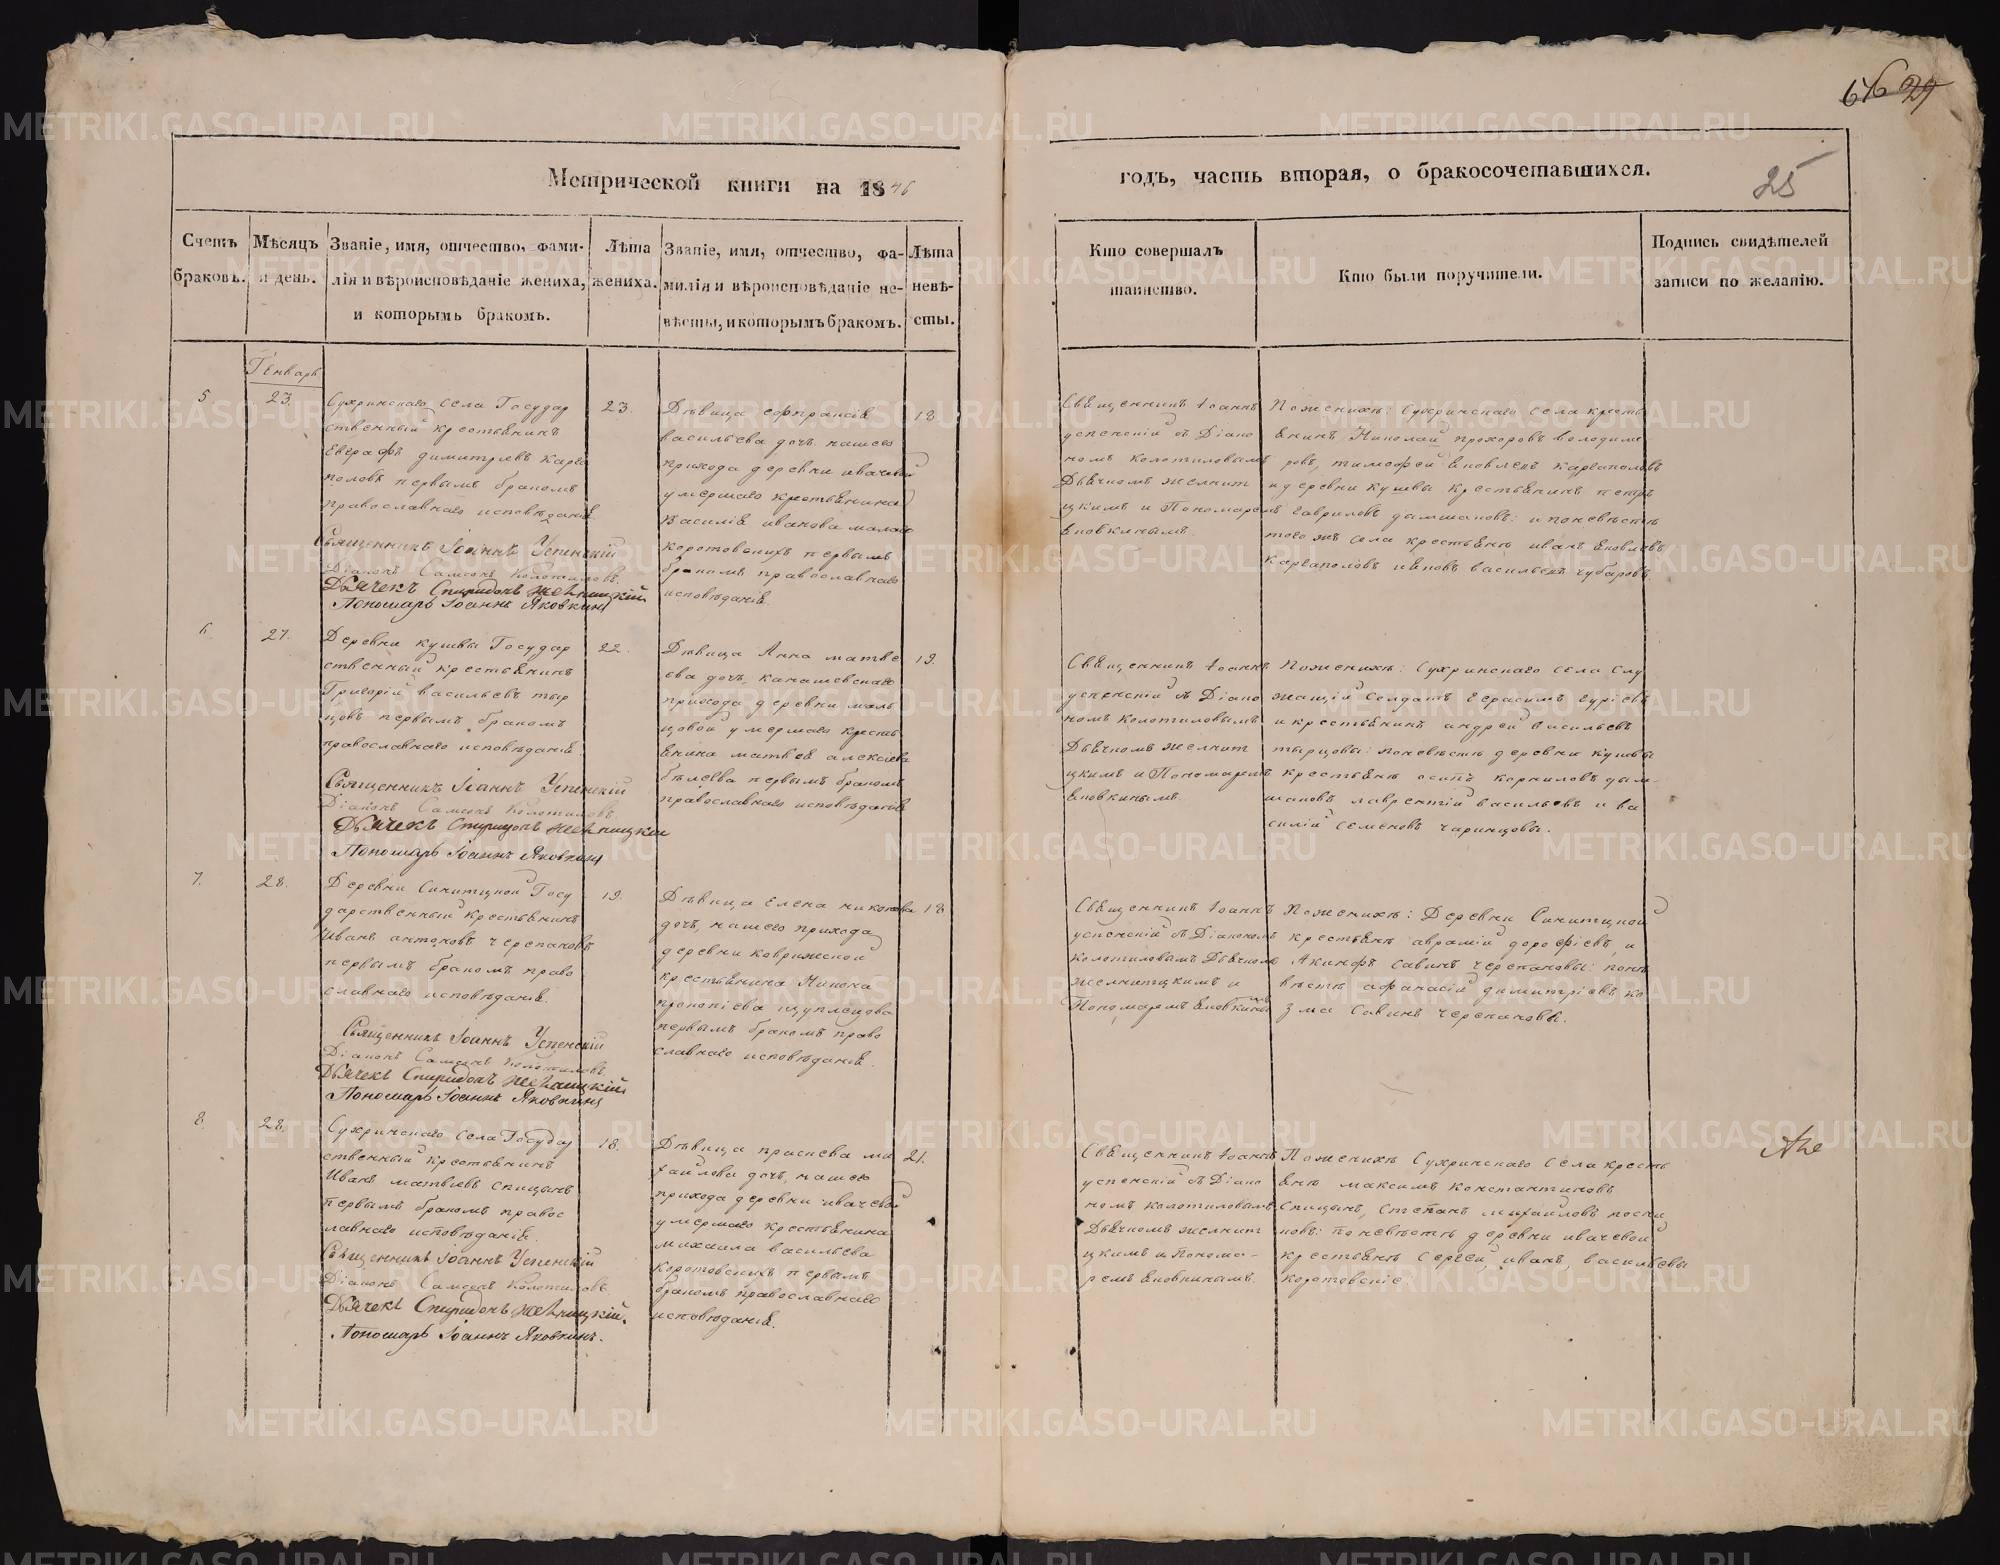 646 29
25
Метрической книги на 1846
годъ, часть вторая, о бракосочетавшихся.
Счетъ браковъ.
Мѣсяцъ и день.
Званіе, имя, отчество, фами-
лія и вѣроисповѣданіе жениха,
и которымъ бракомъ.
Лѣта жениха.
Званіе, имя, отчество, фа-
милія и вѣроисповѣданіе не-
вѣсты, и которымъ бракомъ.
Лѣта невѣ-
сты.
Кто совершалъ
таинство.
Кто были поручители.
Подпись свидѣтелей
записи по желанію.
Генварь
5.
23.
Сухринскаго села Государ
ственный крестьянинъ
Евграфъ димитріевъ карга
половъ первымъ бракомъ
православнаго исповѣданія
Священникъ Іоаннъ Успенскій
Діаконъ Самсонъ Колотиловъ.
Дьячекъ Спиридонъ Желницкій
Пономарь Іоаннъ Яковкинъ
23.
Дѣвица ефпраксія
васильева дочь нашего
прихода деревни ивачевой
умершаго крестьянина
василія иванова мала
коротовскихъ первымъ
бракомъ православнаго
исповѣданія.
18
Священникъ Іоаннъ
успенскій съ Діако
номъ колотиловымъ
Дьячкомъ желнит
цкимъ и Пономаремъ
Яковкинымъ.
Поженихѣ: Сухринскаго села кресть
янинъ Николай прохоровъ володиме
ровъ, тимофей яковлевъ каргаполовъ
и деревни кушвы крестьянинъ петръ
гавриловъ дымшаковъ: и поневѣстѣ
того жъ села крестьяне иванъ яковлевъ
каргаполовъ ияковъ васильевъ чубаровъ
6.
27.
Деревни кушвы Государ
ственный крестьянинъ
Григорій васильевъ тыр
цовъ первымъ бракомъ
православнаго исповѣданія
Священникъ Іоаннъ Успенскій
Діаконъ Самсонъ Колотиловъ.
Дьячекъ Спиридонъ Желницкій
Пономарь Іоаннъ Яковкинъ
22.
Дѣвица Анна матве
ева дочь, канашевскаго
прихода деревни маль
цовой умершаго кресть
янина матвея алексіева
бѣлѣева первымъ бракомъ
православнаго исповѣданія
19.
Священникъ Іоаннъ
успенскій съ Діако
номъ колотиловымъ
Дьячкомъ желнит
цкимъ и Пономаремъ
яковкинымъ.
Поженихѣ: Сухринскаго села слу
жащій солдатъ Герасимъ гуріевъ
и крестьянинъ андрей васильевъ
тырцовы: поневѣстѣ деревни кушвы
крестьяне осипъ корниловъ дым-
шаковъ лаврентій васильевъ и ва
силій семеновъ чаринцовы.
7.
28.
Деревни Синитцной Госу
дарственный крестьянинъ
Иванъ антоновъ черепановъ
первымъ бракомъ право
славнаго исповѣданія.
Священникъ Іоаннъ Успенскій
Діаконъ Самсонъ Колотиловъ.
Дьячекъ Спиридонъ Желницкій
Пономарь Іоаннъ Яковкинъ
19.
Дѣвица Елена никонова
дочь, нашего прихода
деревни коврижской
крестьянина Никона
прокопіева щуплецова
первымъ бракомъ право
славнаго исповѣданія.
18
Священникъ Іоаннъ
успенскій съ Діакономъ
колотиловымъ Дьячкомъ
желнитцкимъ и
Пономаремъ яковкинымъ
Поженихѣ: Деревни Синитцной
крестьяне аврамій дорофіевъ, и
Акинфъ савинъ черепановы: поне
вѣстѣ афанасій димитріевъ ко
зма савинъ черепановы.
8.
28.
Сухринскаго села Государ
ственный крестьянинъ
Иванъ матвіевъ спицынъ
первымъ бракомъ правос
лавнаго исповѣданія.
Священникъ Іоаннъ Успенскій
Діаконъ Самсонъ Колотиловъ.
Дьячекъ Спиридонъ Желницкій.
Пономарь Іоаннъ Яковкинъ.
18.
Дѣвица прасцева ми
хайлова дочь, нашего
прихода деревни ивачевой
умершаго крестьянина
михаила васильева
коротовскихъ первымъ
бракомъ православнаго
исповѣданія.
21.
Священникъ Іоаннъ
успенскій съ Діако
номъ колотиловымъ
Дьячкомъ желнит
цкимъ и Понома-
ремъ яковкинымъ.
Поженихѣ Сухринскаго села кресть
яне максимъ константиновъ
спицынъ, степанъ михайловъ
новъ: поневѣстѣ деревни ивачевой
крестьяне сергей, иванъ, васильевы
коротовскіе.
METRIKI.GASO-URAL.RU